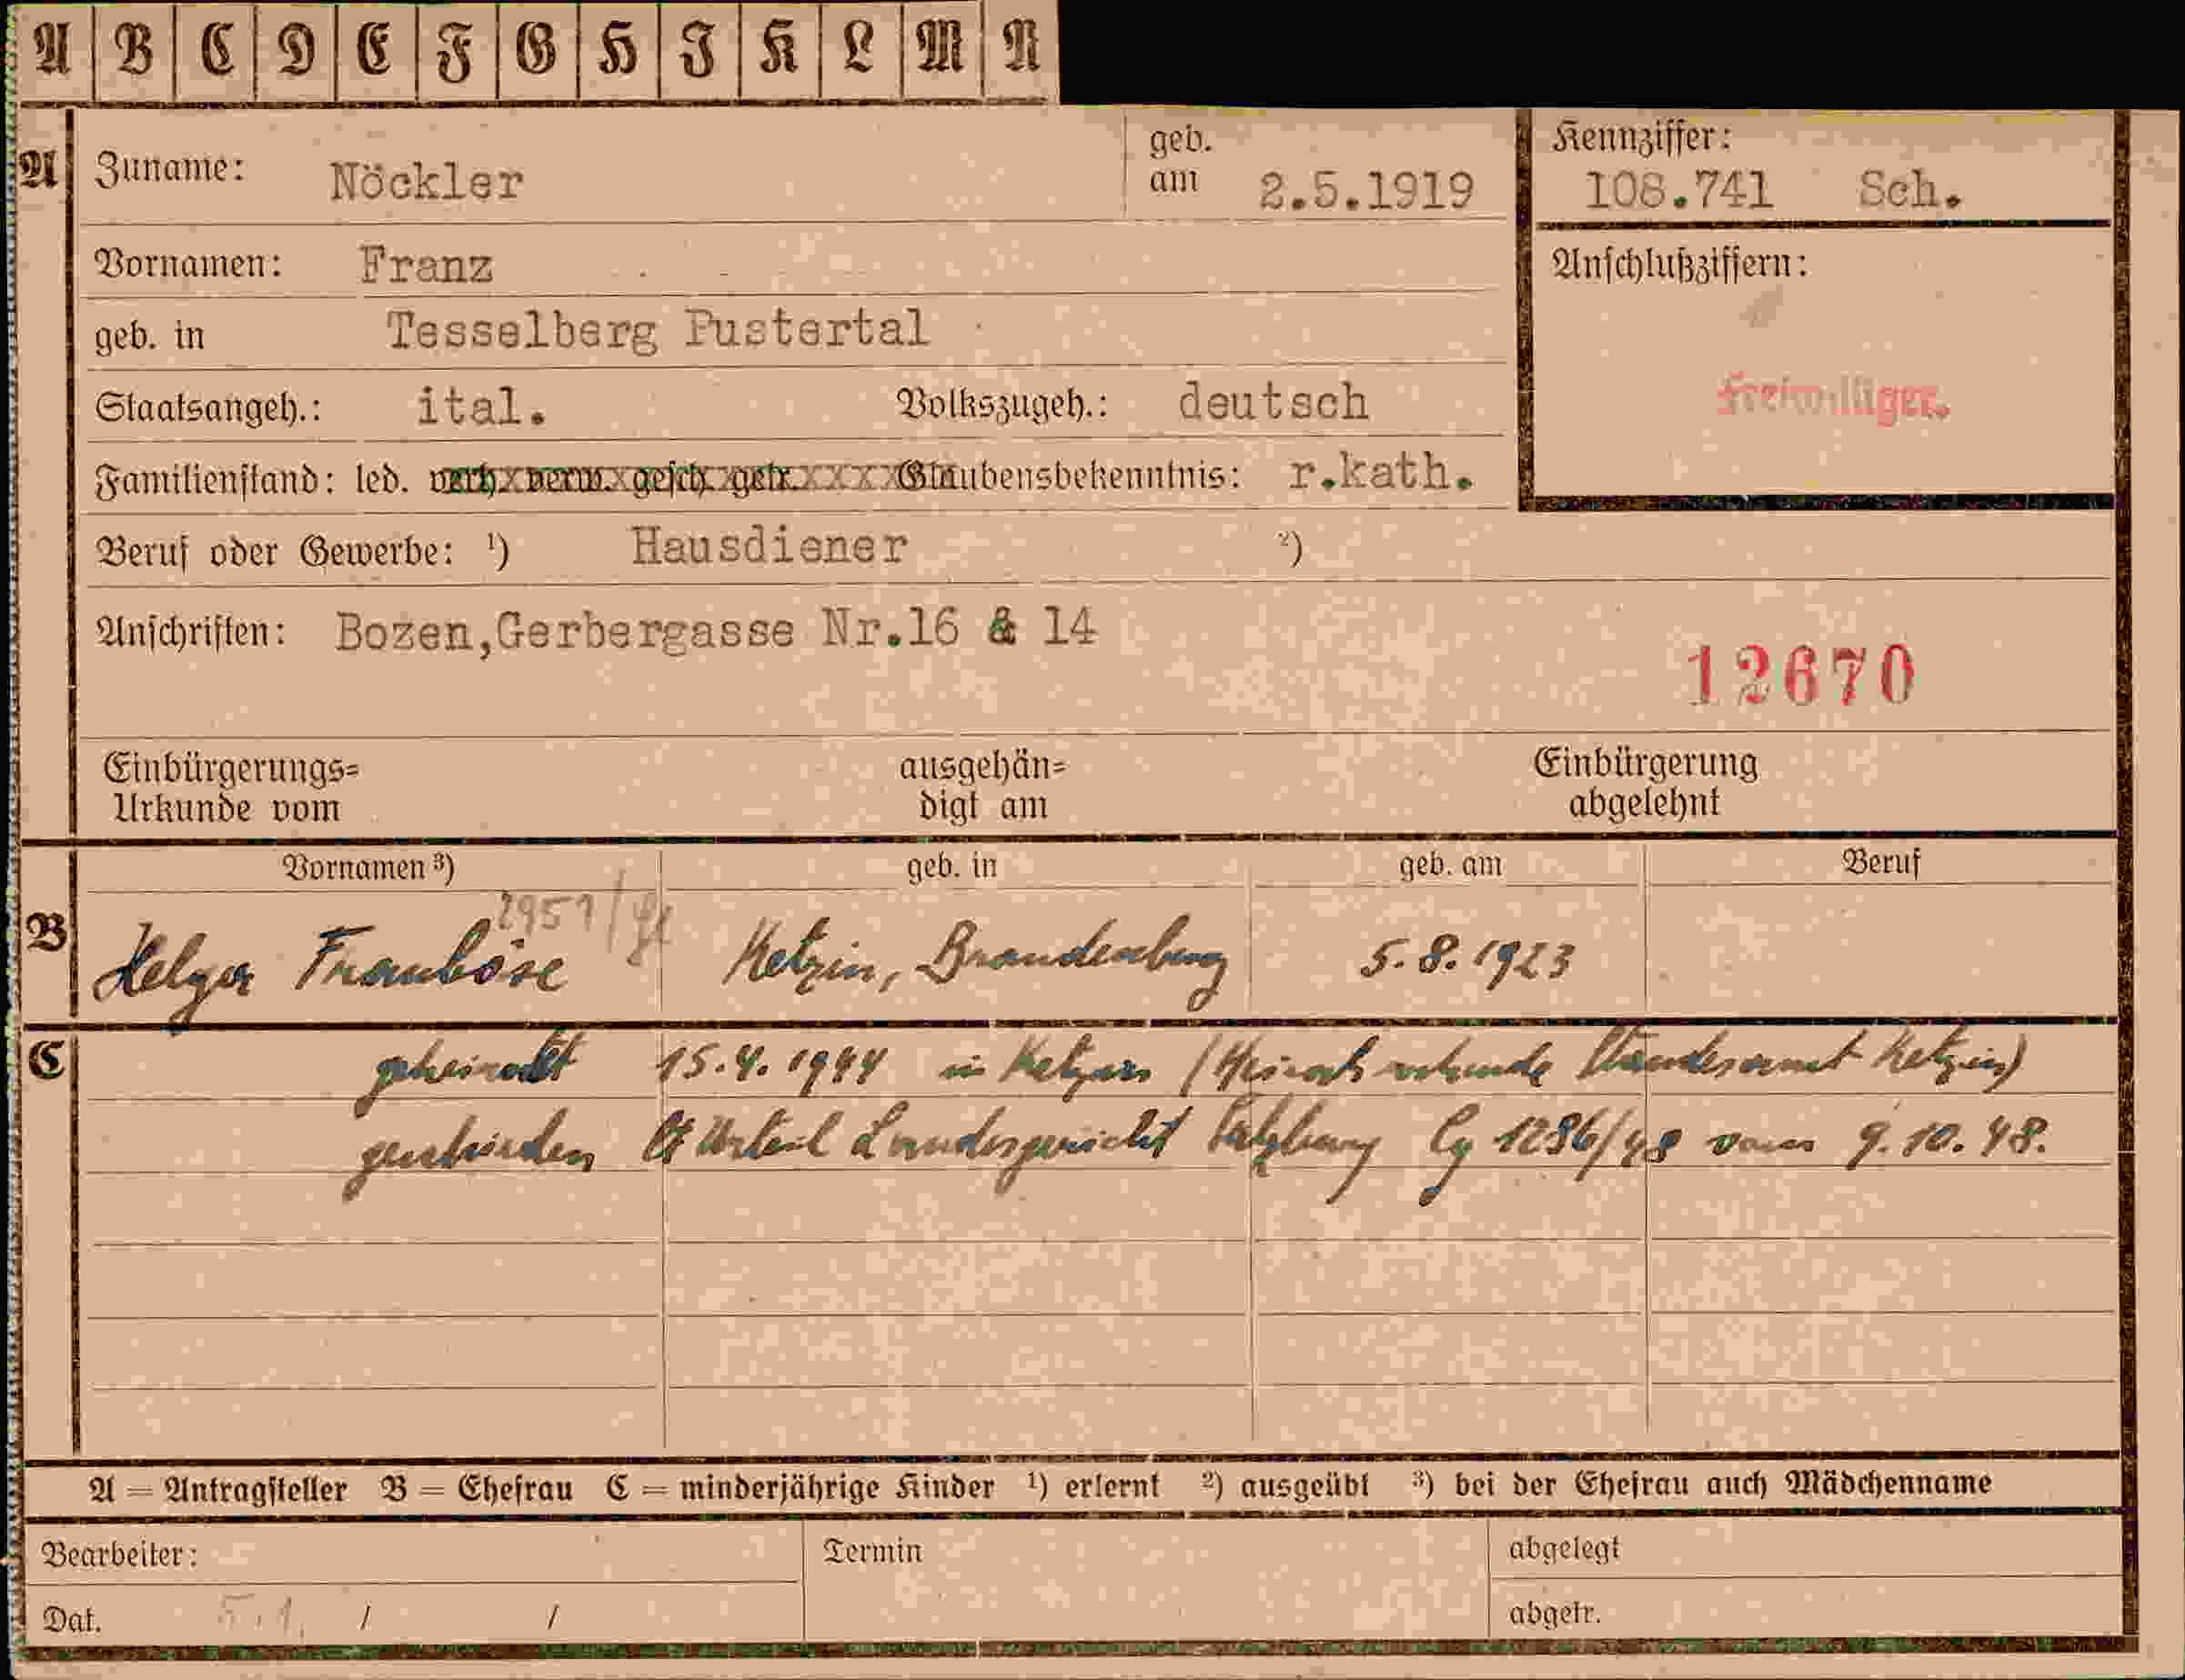 A B C D E F G H I K L M N
A Zuname: Nöckler geb. am 2.5.1919 Kennziffer: 108.741 Sch.
Vornamen: Franz Anschlußziffern:
geb. in Tesselberg Pustertal
Staatsangeh.: ital. Volkszugeh.: deutsch Freiwilliger.
Familienstand: led. verh. verw. gesch. getr. Glaubensbekenntnis: r.kath.
Beruf oder Gewerbe: ¹) Hausdiener ²)
Anschriften: Bozen,Gerbergasse Nr.16 & 14
12670
Einbürgerungs= ausgehän= Einbürgerung
Urkunde vom digt am abgelehnt
Vornamen ³) geb. in geb. am Beruf
2951/
B Helga Frauböse Ketzin, Brandenburg 5.8.1923
C geheiratet 15.4.1944 in Ketzin (Heiratsurkunde Standesamt Ketzin)
geschieden lt Urteil Landesgericht Salzburg Cg 1286/48 vom 9.10.48.
A = Antragsteller B = Ehefrau C = minderjährige Kinder ¹) erlernt ²) ausgeübt ³) bei der Ehefrau auch Mädchenname
Bearbeiter: Termin abgelegt
Dat. 5.1. / / abgetr.